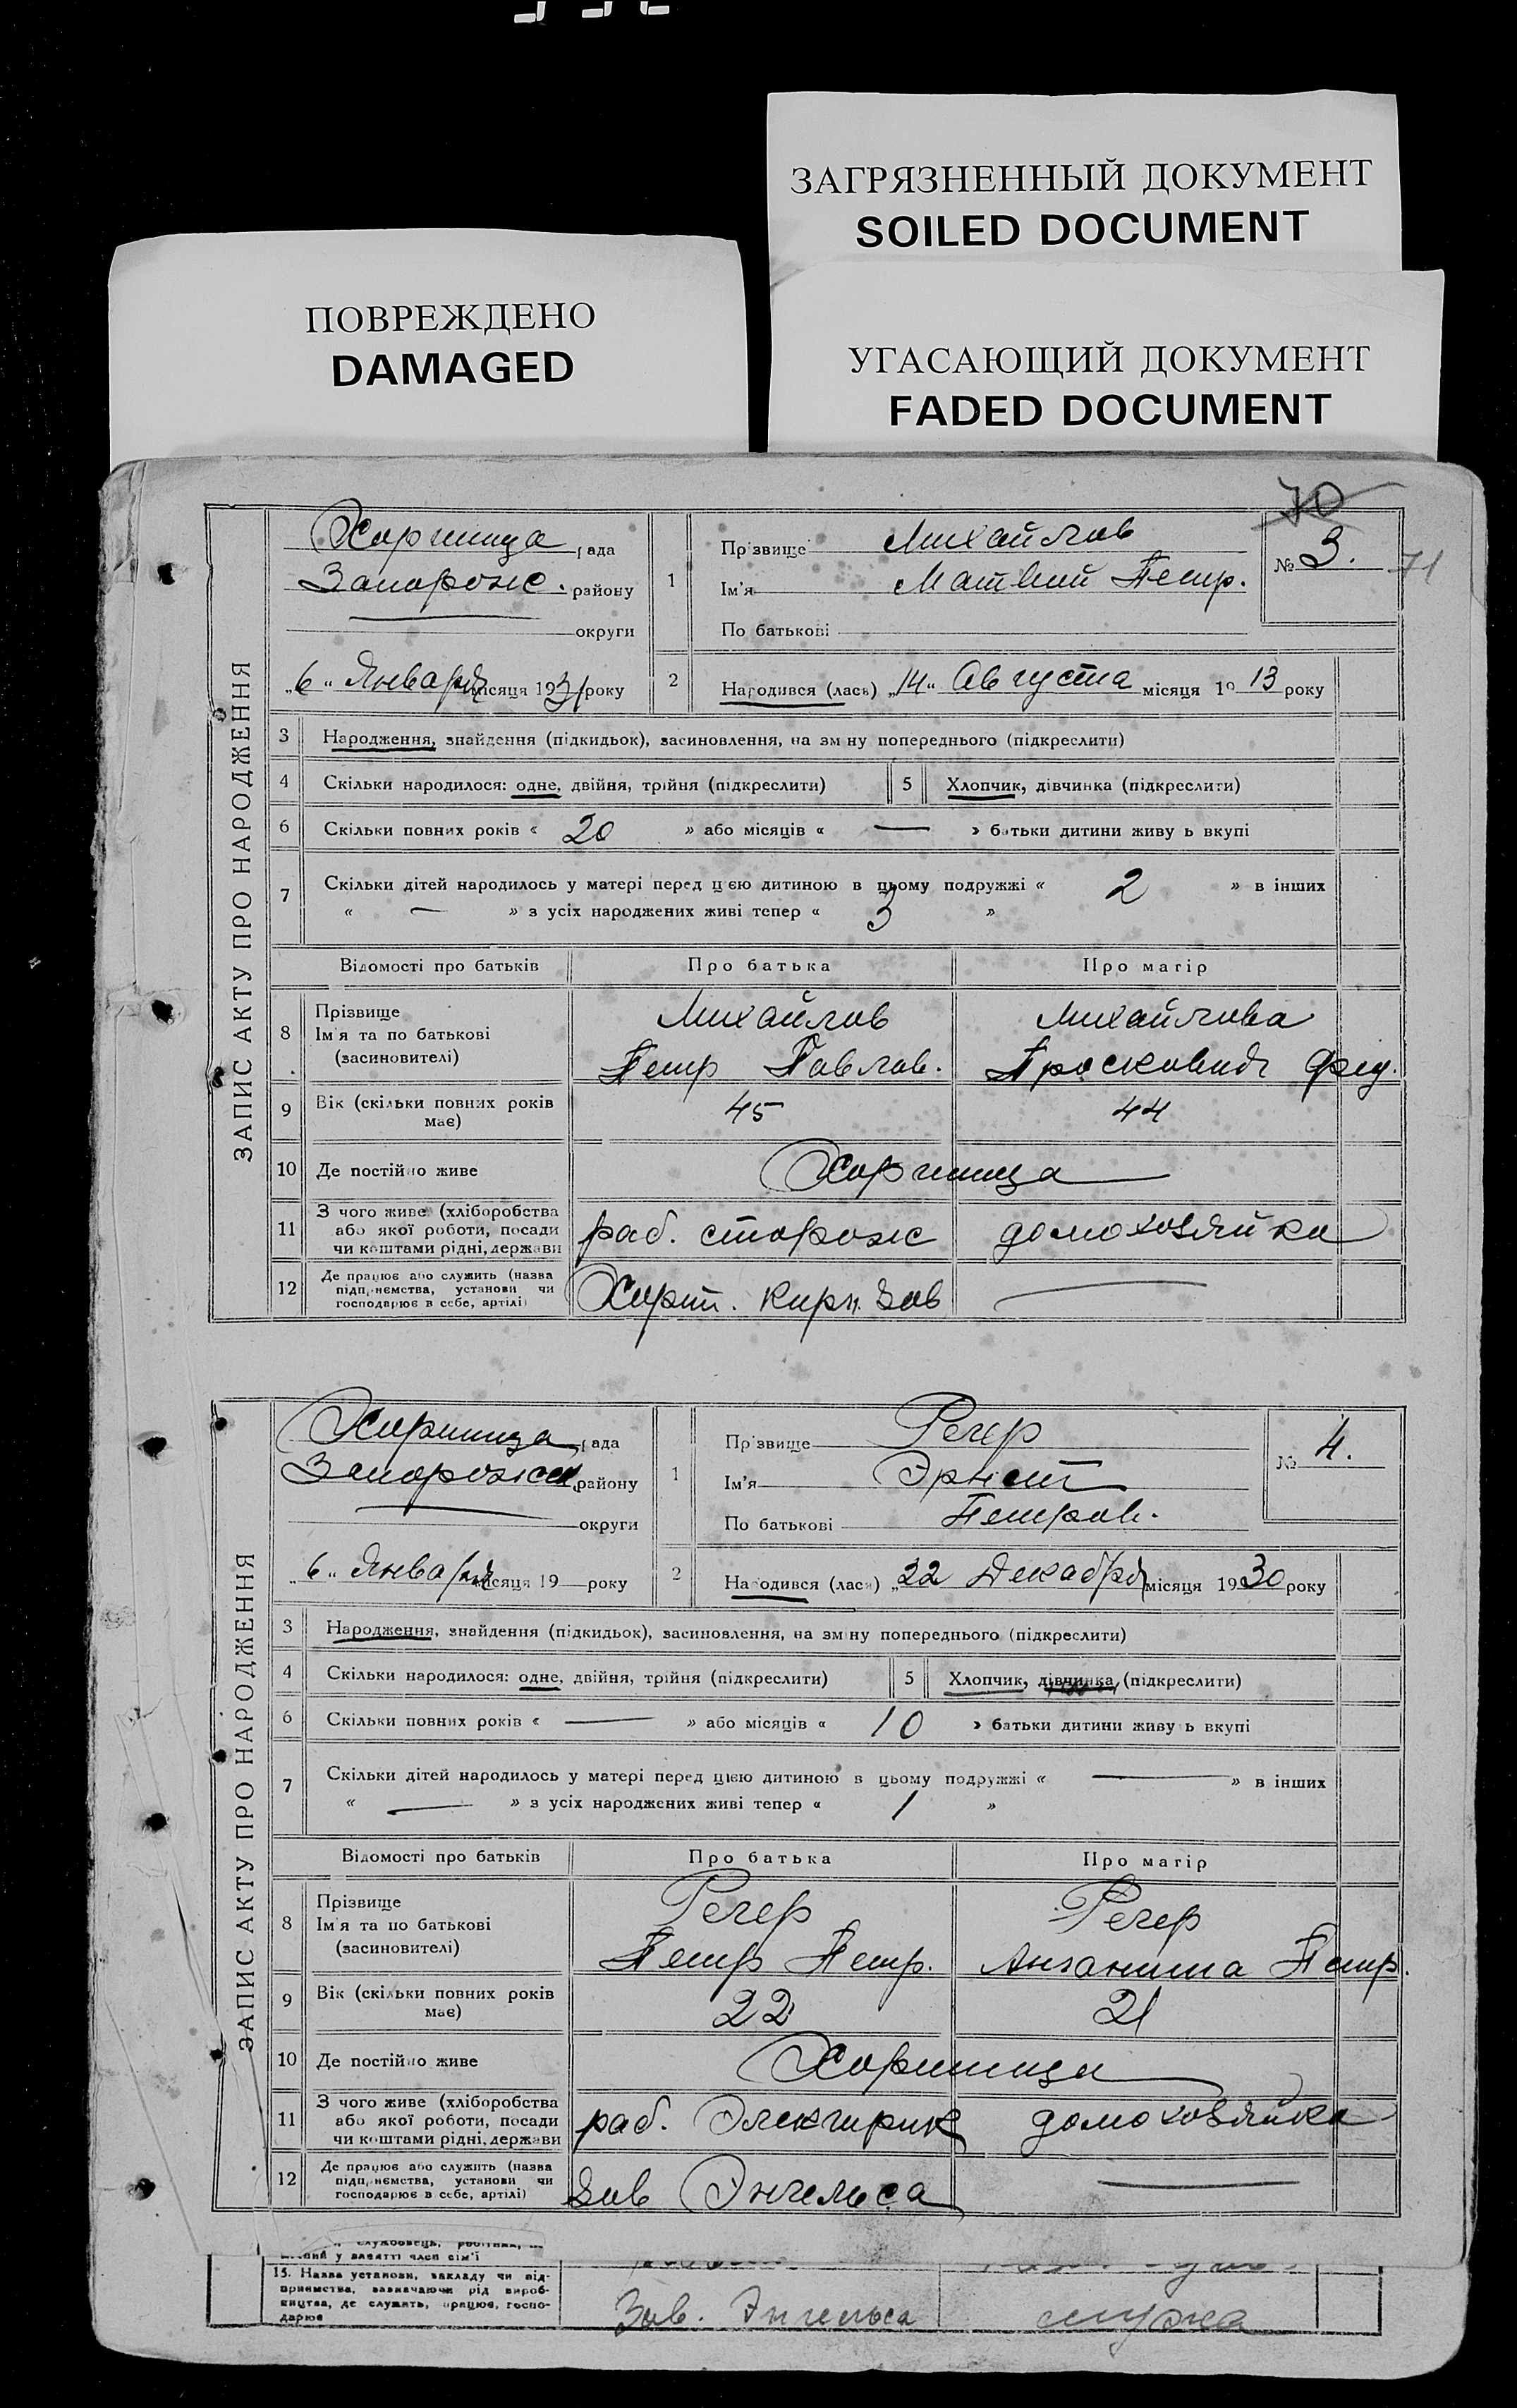 ЗАГРЯЗНЕННЫЙ ДОКУМЕНТ
SOILED DOCUMENT
ПОВРЕЖДЕНО
DAMAGED
УГАСАЮЩИЙ ДОКУМЕНТ
FADED DOCUMENT
70
ЗАПИС АКТУ ПРО НАРОДЖЕННЯ
Хортица рада
Запорож. району
округи
„6“ Января місяця 1931 року
1 Прізвище Михайлов
Ім'я Матвий Петр.
По батькові
№ 3. 71
2 Народився (лась) „14“ Августа місяця 19 13 року
3 Народження, знайдення (підкидьок), засиновлення, на зміну попереднього (підкреслити)
4 Скільки народилося: одне, двійня, трійня (підкреслити) 5 Хлопчик, дівчинка (підкреслити)
6 Скільки повних років « 20 » або місяців « — » батьки дитини живуть вкупі
7 Скільки дітей народилось у матері перед цією дитиною в цьому подружжі « 2 » в інших
« — » з усіх народжених живі тепер « 3 »
Відомості про батьків Про батька Про матір
8 Прізвище Ім'я та по батькові (засиновителі) Михайлов Михайлова
Петр Павлов. Просковия Фед.
9 Вік (скільки повних років має) 45 44
10 Де постійно живе Хортица
11 З чого живе (хліборобства або якої роботи, посади чи коштами рідні, держави раб. сторож домохозяйка
12 Де працює або служить (назва підприємства, установи чи господарює в себе, артілі) Хорт. кирп. зав —
ЗАПИС АКТУ ПРО НАРОДЖЕННЯ
Хортица рада
Запорожск. району
округи
„6“ Января місяця 19 — року
1 Прізвище Регер
Ім'я Эрнст
По батькові Петров.
№ 4.
2 Народився (лась) „22 Декабря місяця 1930 року
3 Народження, знайдення (підкидьок), засиновлення, на зміну попереднього (підкреслити)
4 Скільки народилося: одне, двійня, трійня (підкреслити) 5 Хлопчик, дівчинка (підкреслити)
6 Скільки повних років « — » або місяців « 10 » батьки дитини живуть вкупі
7 Скільки дітей народилось у матері перед цією дитиною в цьому подружжі « — » в інших
« — » з усіх народжених живі тепер « 1 »
Відомості про батьків Про батька Про матір
8 Прізвище Ім'я та по батькові (засиновителі) Регер Регер
Петр Петр. Анганита Петр.
9 Вік (скільки повних років має) 22 21
10 Де постійно живе Хортица
11 З чого живе (хліборобства або якої роботи, посади чи коштами рідні, держави раб. Электирик домохозяйка
12 Де працює або служить (назва підприємства, установи чи господарює в себе, артілі) Зав Энгельса —
у занятті член сім'ї
13. Назва установи, закладу чи підприємства, зазначаючи рід виробництва, де служить, працює, господарює
Зав. Энгельса мужа